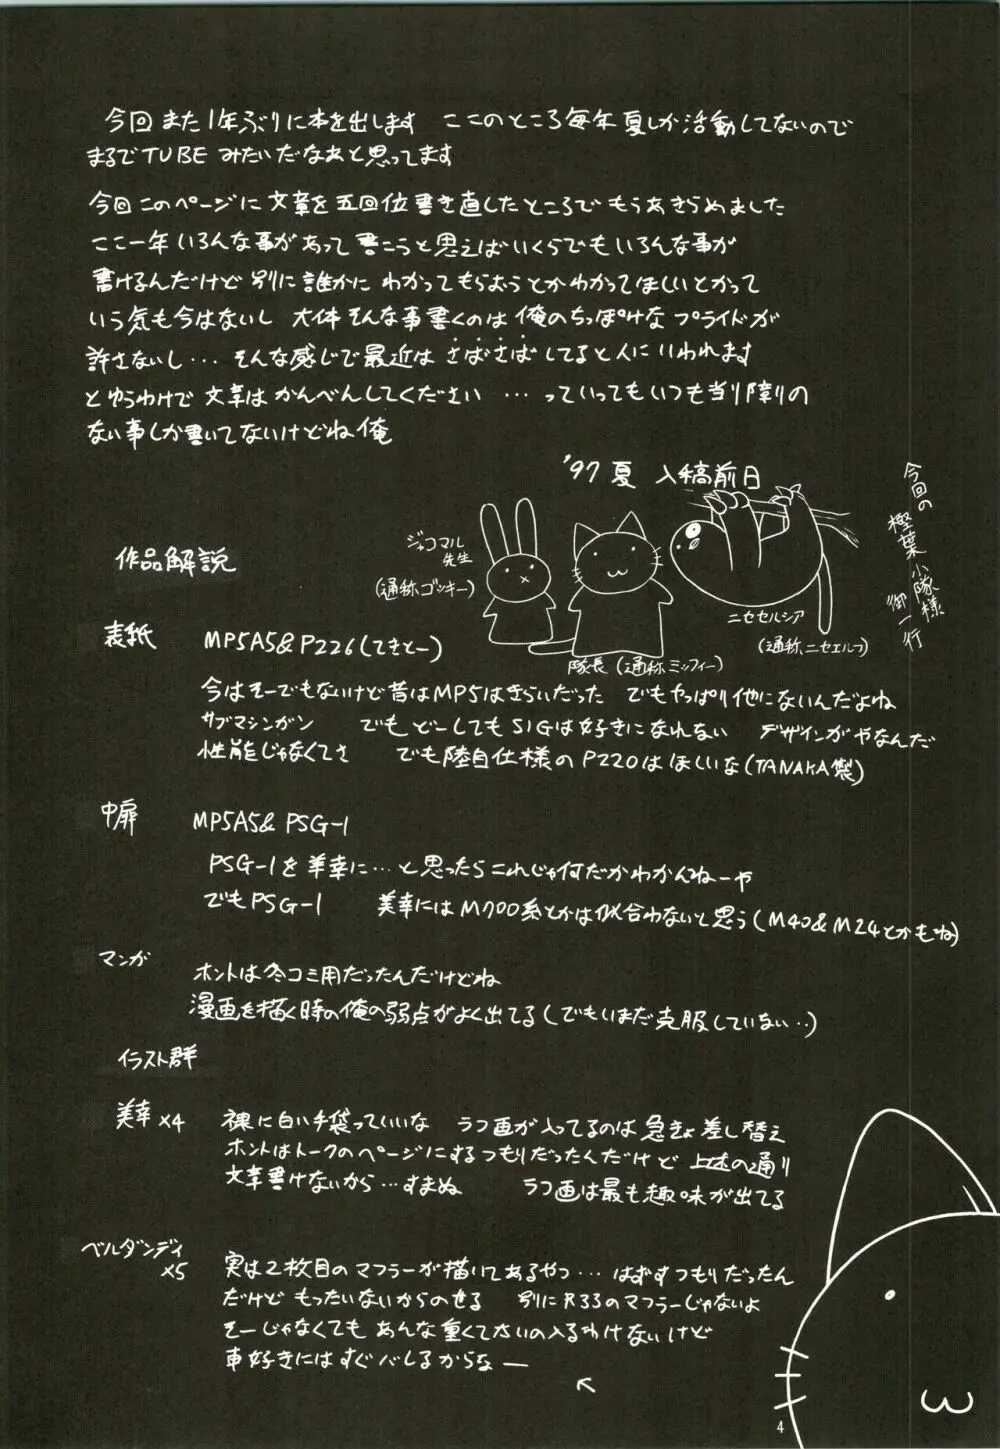 今回また1年ぶりに本を出します ここのところ毎年夏しか活動してないので
まるでTUBEみたいだなぁと思ってます
今回このページに文章を五回位書き直したところでもうあきらめました
ここ一年いろんな事があって書こうと思えばいくらでもいろんな事が
書けるんだけど別に誰かにわかってもらおうとかわかってほしいとかって
いう気も今はないし 大体そんな事書くのは俺のちっぽけなプライドが
許さないし… そんな感じで最近はさばさばしてると人にいわれます
とゆうわけで文章はかんべんしてください …っていってもいつも当り障りの
ない事しか書いてないけどね俺
'97夏 入稿前日
今回の
樫葉小隊様
御一行
ジャコマル
先生
(通称ゴッキー)
隊長(通称ミッフィー)
ニセセルシア
(通称、ニセエルフ)
作品解説
表紙 MP5A5&P226(てきとー)
今はそーでもないけど昔はMP5はきらいだった でもやっぱり他にないんだよね
サブマシンガン でもどーしてもSIGは好きになれない デザインがやなんだ
性能じゃなくてさ でも陸自仕様のP220はほしいな(TANAKA製)
中扉 MP5A5&PSG-1
PSG-1を美幸に…と思ったらこれじゃ何だかわかんねーや
でもPSG-1 美幸にはM700系とかは似合わないと思う(M40&M24とかもね)
マンガ ホントは冬コミ用だったんだけどね
漫画を描く時の俺の弱点がよく出てる(でもいまだ克服していない‥)
イラスト群
美幸×4 裸に白い手袋っていいな ラフ画が入ってるのは急きょ差し替え
ホントはトークのページにするつもりだったんだけど 上述の通り
文章書けないから…すまぬ ラフ画は最も趣味が出てる
ベルダンディ
×5 実は2枚目のマフラーが描いてあるやつ… はずすつもりだったん
だけどもったいないからのせる 別にR33のマフラーじゃないよ
そーじゃなくてもあんな重くてさいの入るわけないけど
車好きにはすぐバレるからなー
4